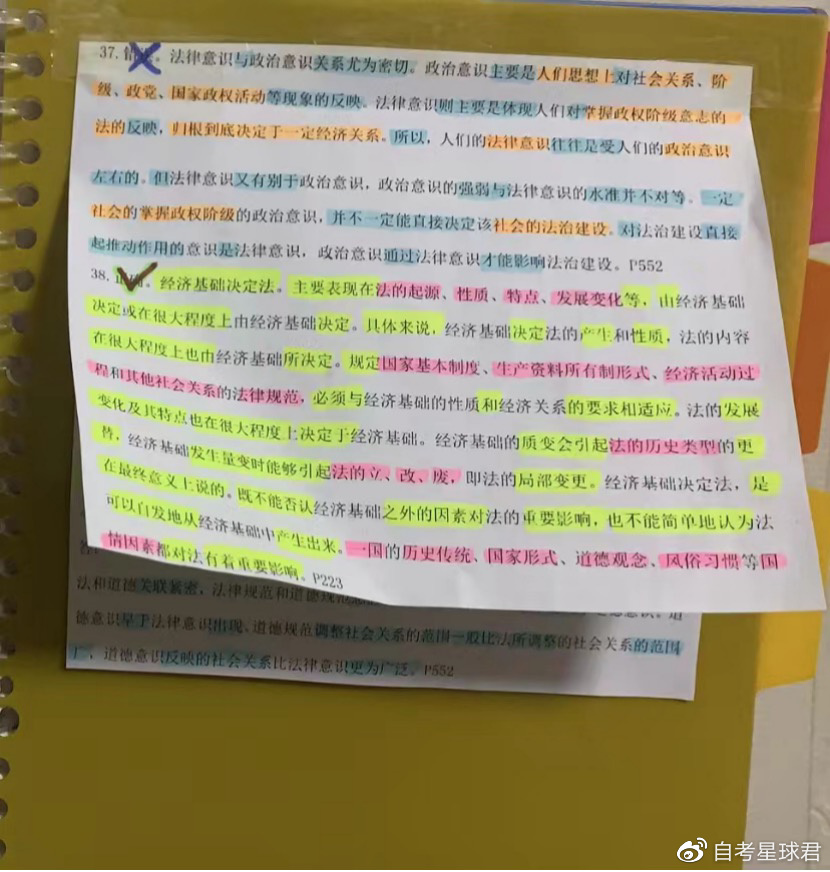 37. 错误。法律意识与政治意识关系尤为密切。政治意识主要是人们思想上对社会关系、阶
级、政党、国家政权活动等现象的反映。法律意识则主要是体现人们对掌握政权阶级意志的
法的反映，归根到底决定于一定经济关系。所以，人们的法律意识往往是受人们的政治意识
左右的。但法律意识又有别于政治意识，政治意识的强弱与法律意识的水准并不对等。一定
社会的掌握政权阶级的政治意识，并不一定能直接决定该社会的法治建设。对法治建设直接
起推动作用的意识是法律意识，政治意识通过法律意识才能影响法治建设。P552
38. 正确。经济基础决定法。主要表现在法的起源、性质、特点、发展变化等，由经济基础
决定或在很大程度上由经济基础决定。具体来说，经济基础决定法的产生和性质，法的内容
在很大程度上也由经济基础所决定。规定国家基本制度、生产资料所有制形式、经济活动过
程和其他社会关系的法律规范，必须与经济基础的性质和经济关系的要求相适应。法的发展
变化及其特点也在很大程度上决定于经济基础。经济基础的质变会引起法的历史类型的更
替，经济基础发生量变时能够引起法的立、改、废，即法的局部变更。经济基础决定法，是
在最终意义上说的。既不能否认经济基础之外的因素对法的重要影响，也不能简单地认为法
可以自发地从经济基础中产生出来。一国的历史传统、国家形式、道德观念、风俗习惯等国
情因素都对法有着重要影响。P223
法和道德关联紧密，法律规范和道德规范
德意识早于法律意识出现、道德规范调整社会关系的范围一般比法所调整的社会关系的范围
广，道德意识反映的社会关系比法律意识更为广泛。P552
自考星球君